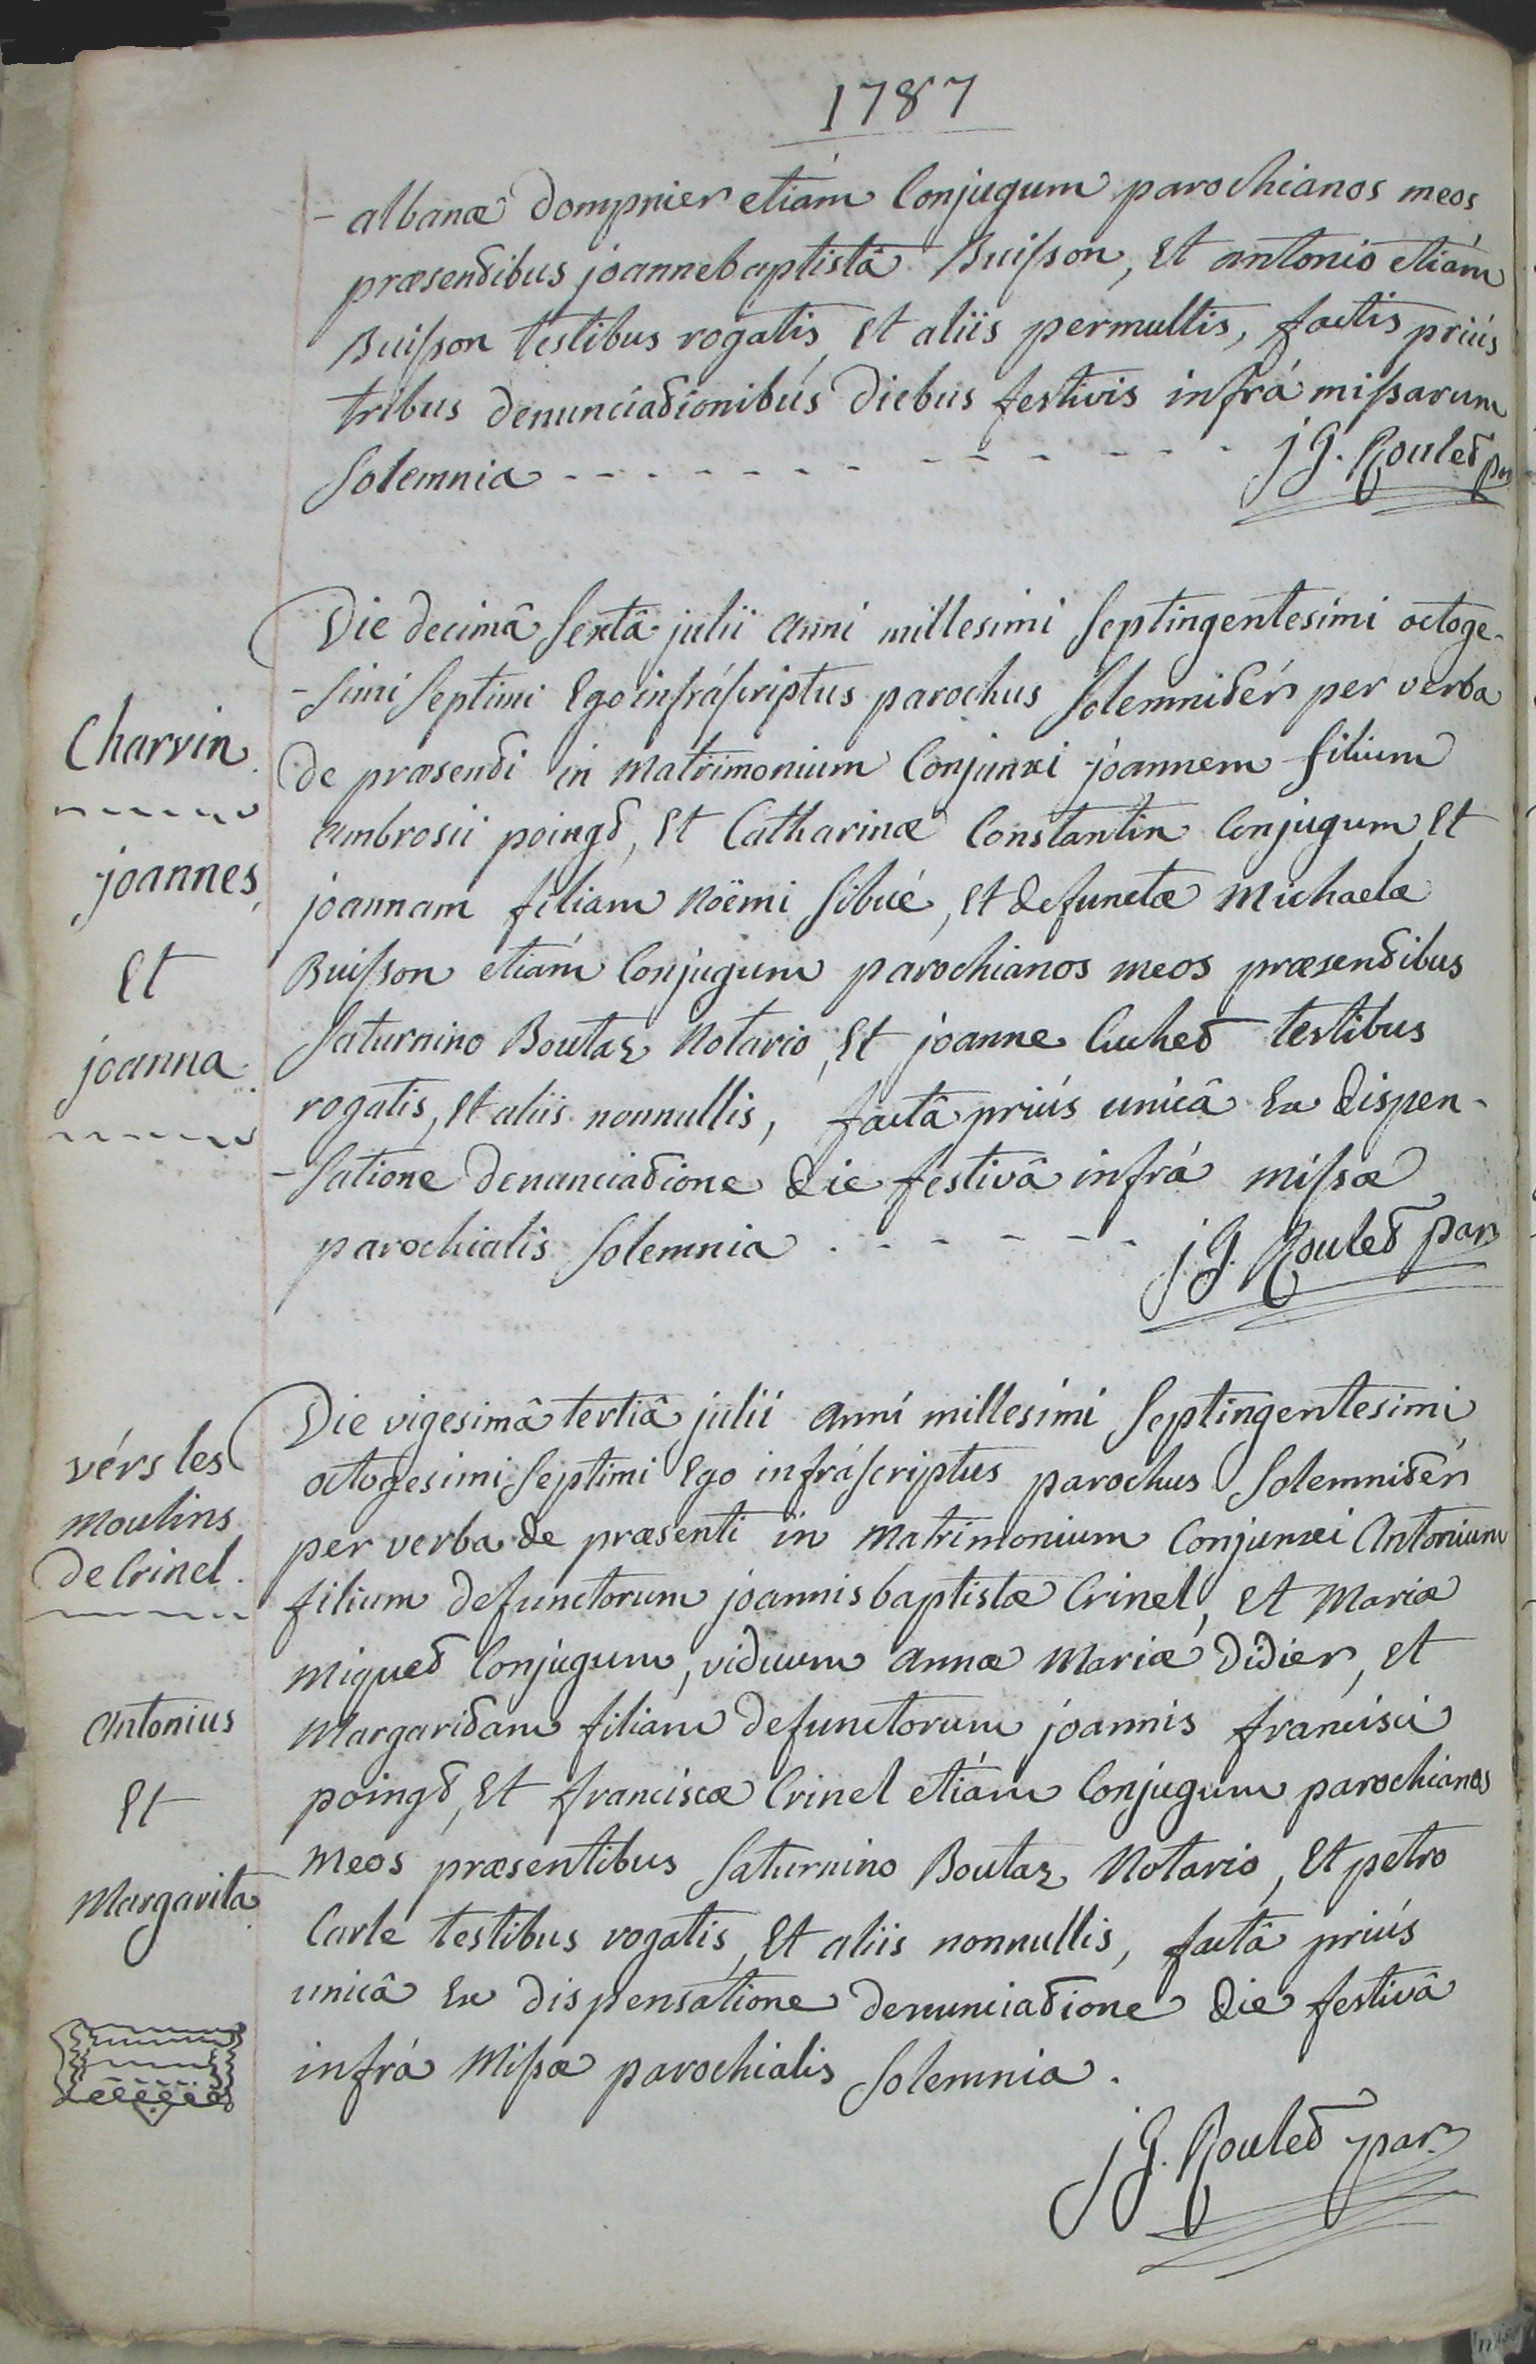 1787
- albanæ Dompnier etiám Conjugum parochianos meos
præsentibus joannebaptistâ Buisson, Et antonio etiám
Buisson testibus rogatis, Et aliis permultis, factis priús
tribus denunciationibús diebus festivis infrá missarum
Solemnia - - - - - - - - - - - - - j G. Roulet
Die decimâ Sextâ julii anni millesimi Septingentesimi octoge-
-simi Septimi Ego infráscriptus parochus Solemnitér per verba
de præsenti in Matrimonium Conjunxi joannem filium
ambrosii poingt, Et Catharinæ Constantin Conjugum, Et
joannam filiam Noëmi Sibué, Et defunctæ Michaelæ
Buisson etiám Conjugum parochianos meos præsentibus
Saturnino Boutaz Notario, Et joanne Cuchet testibus
rogatis, Et aliis nonnullis, factâ priús unicâ Ex dispen-
-satione denunciatione die festivâ infrá missæ
parochialis Solemnia . - - - - - j. G. Roulet par
Charvin.
joannes,
Et
joanna.
Die vigesimâ tertiâ julii anni millesimi Septingentesimi
octogesimi Septimi Ego infráscriptus parochus Solemnitér
per verba de præsenti in Matrimonium Conjunxi Antonium
filium defunctorum joannis baptistæ Crinel, Et Mariæ
Miquet Conjugum, viduum annæ Mariæ Didier, Et
Margaritam filiam defunctorum joannis francisci
poingt, Et franciscæ Crinel etiám Conjugum parochianos
meos præsentibus Saturnino Boutaz Notario, Et petro
Carle testibus rogatis, Et aliis nonnullis, factâ priús
unicâ Ex dispensatione denunciatione die festivâ
infrá Missæ parochialis Solemnia.
j G. Roulet par
vérs les
Moulins
de Crinel.
Antonius
Et
Margarita.